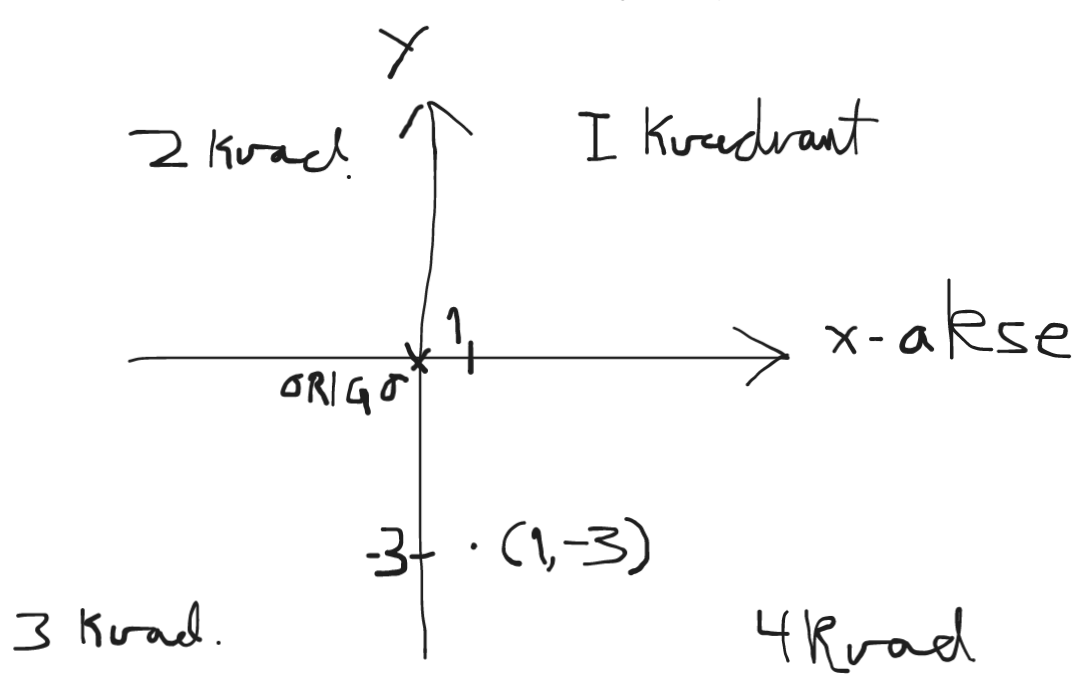 Y
2 Kvad.
I Kvadrant
1
x-akse
ORIGO
-3
(1,-3)
3 Kvad.
4 Kvad